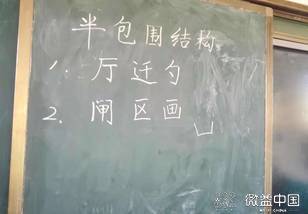 半包围结构
1. 厅迁勺
2. 闸区画凵
微益中国